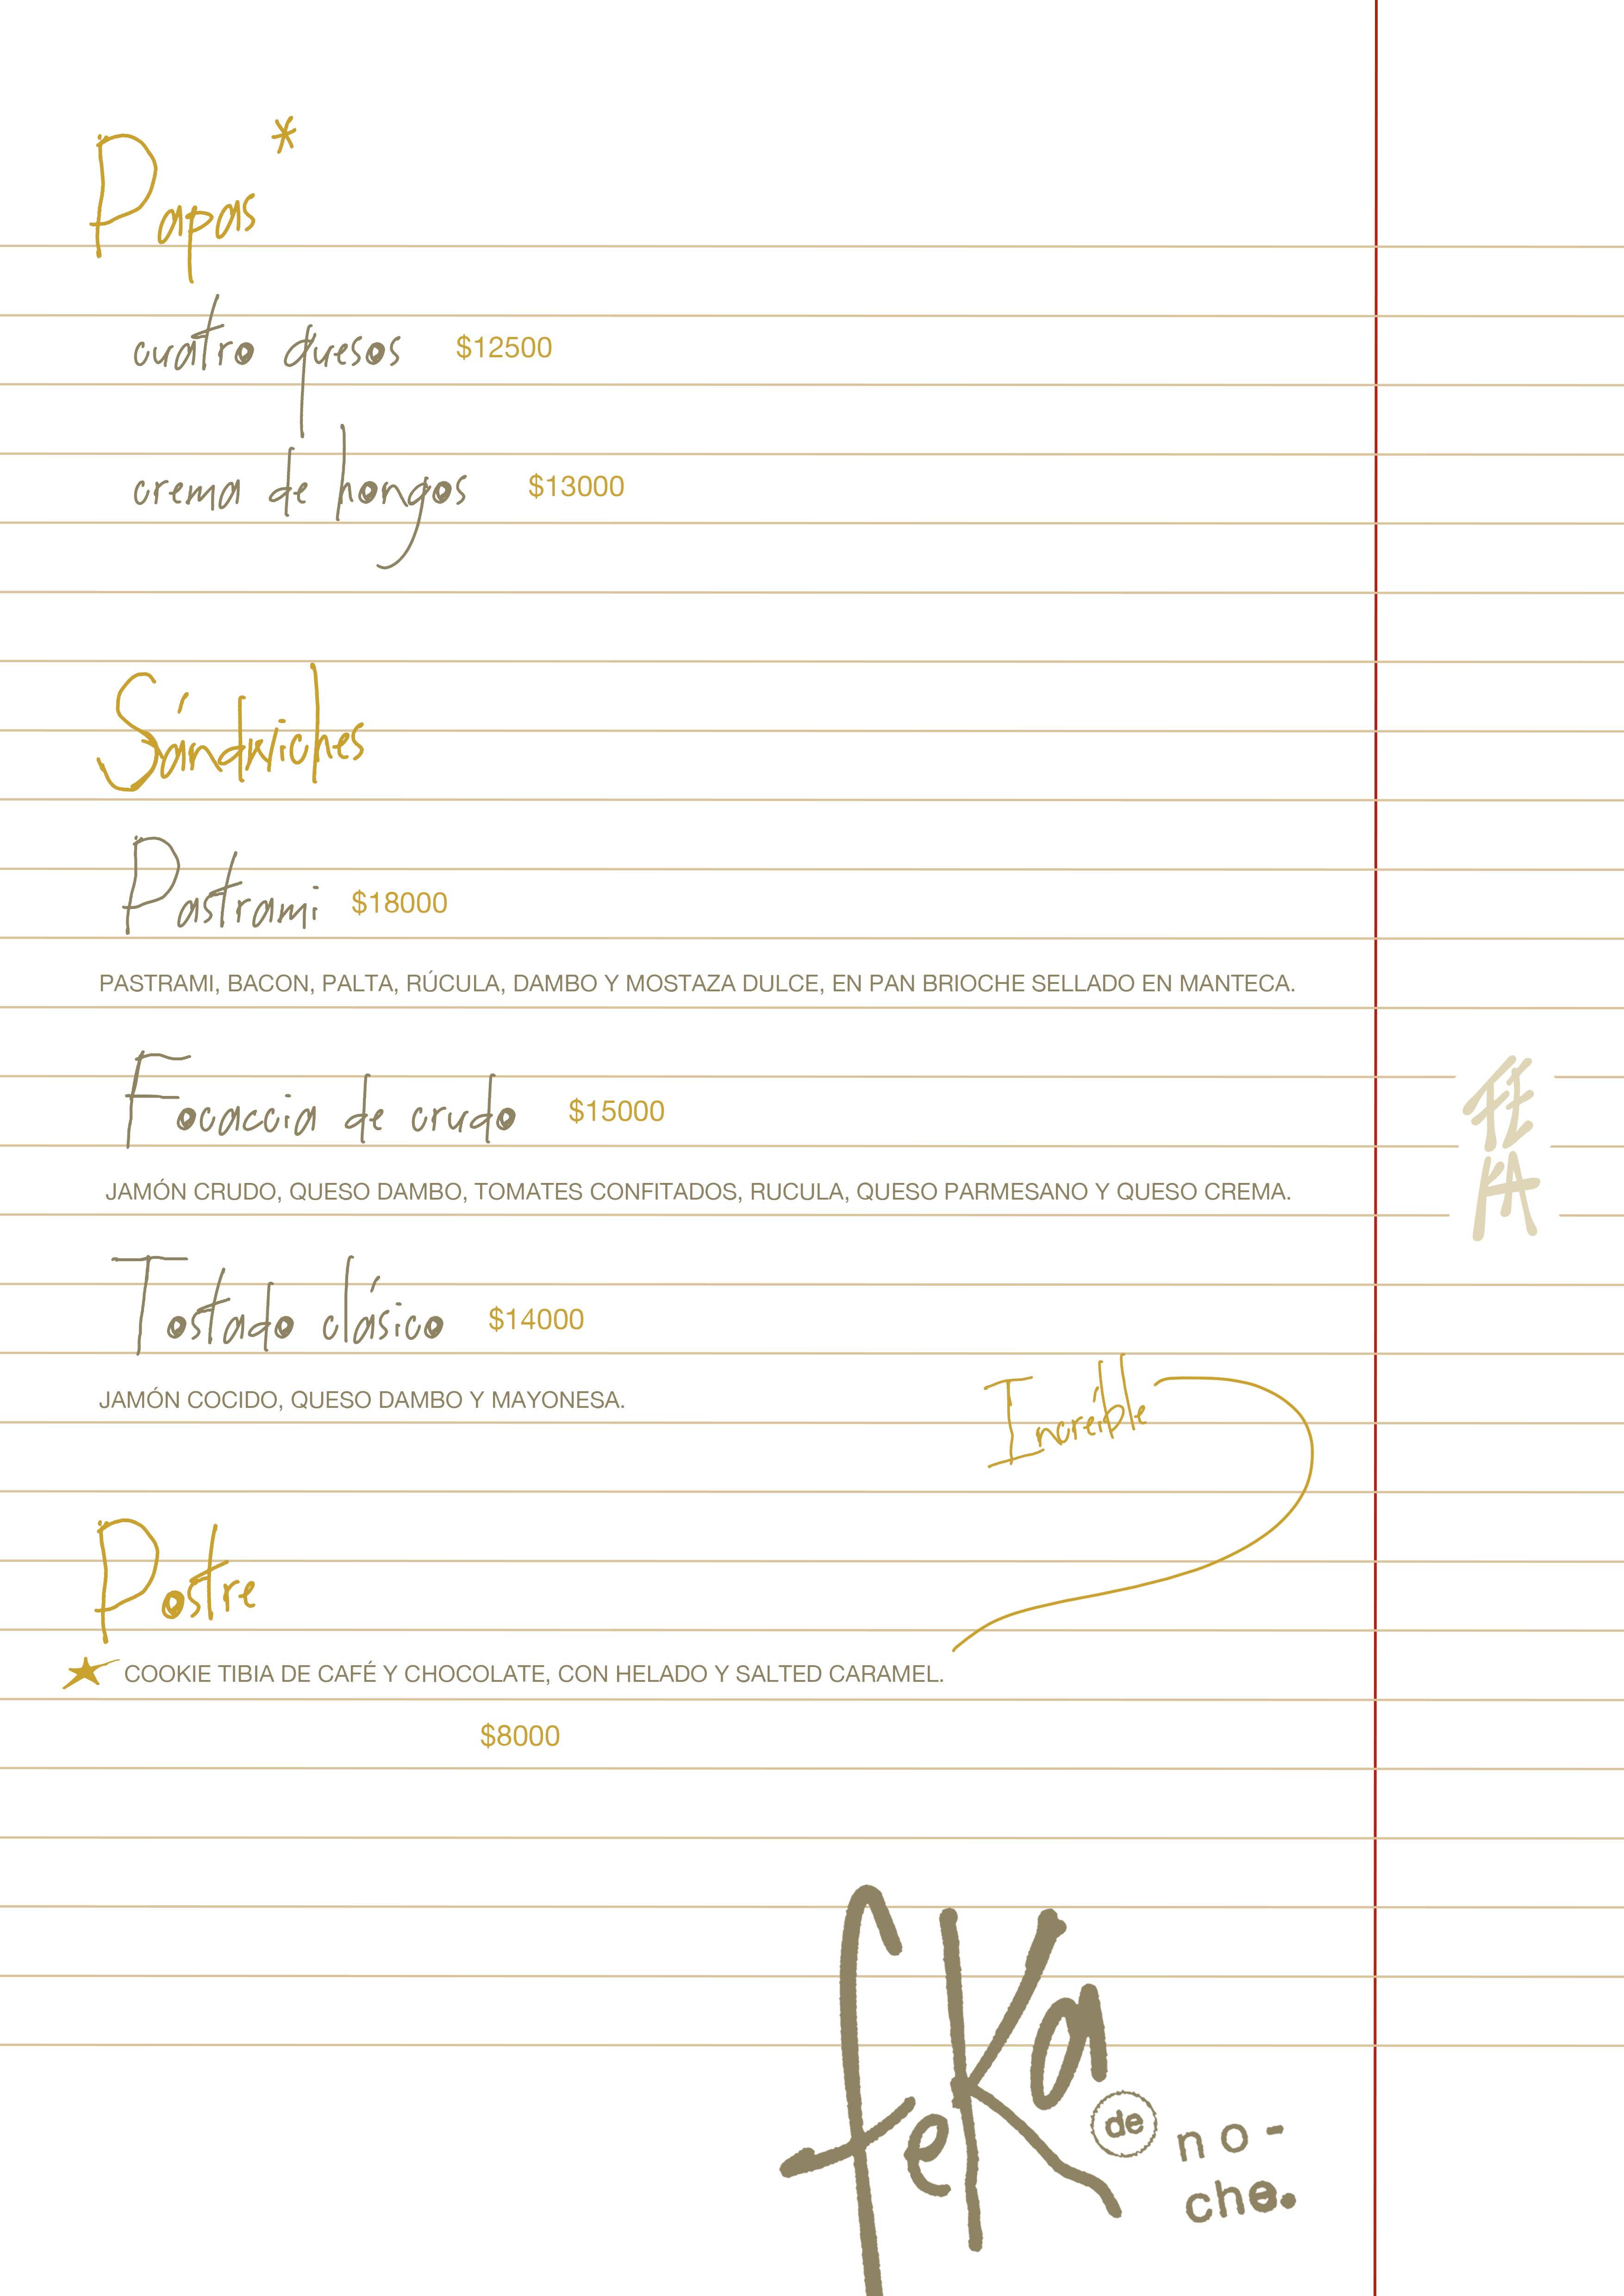 Papas *
cuatro quesos $12500
crema de hongos $13000
Sándwiches
Pastrami $18000
PASTRAMI, BACON, PALTA, RÚCULA, DAMBO Y MOSTAZA DULCE, EN PAN BRIOCHE SELLADO EN MANTECA.
Focaccia de crudo $15000
FEKA
JAMÓN CRUDO, QUESO DAMBO, TOMATES CONFITADOS, RUCULA, QUESO PARMESANO Y QUESO CREMA.
Tostado clásico $14000
JAMÓN COCIDO, QUESO DAMBO Y MAYONESA.
Increíble
Postre
COOKIE TIBIA DE CAFÉ Y CHOCOLATE, CON HELADO Y SALTED CARAMEL.
$8000
feka
de no-
che.